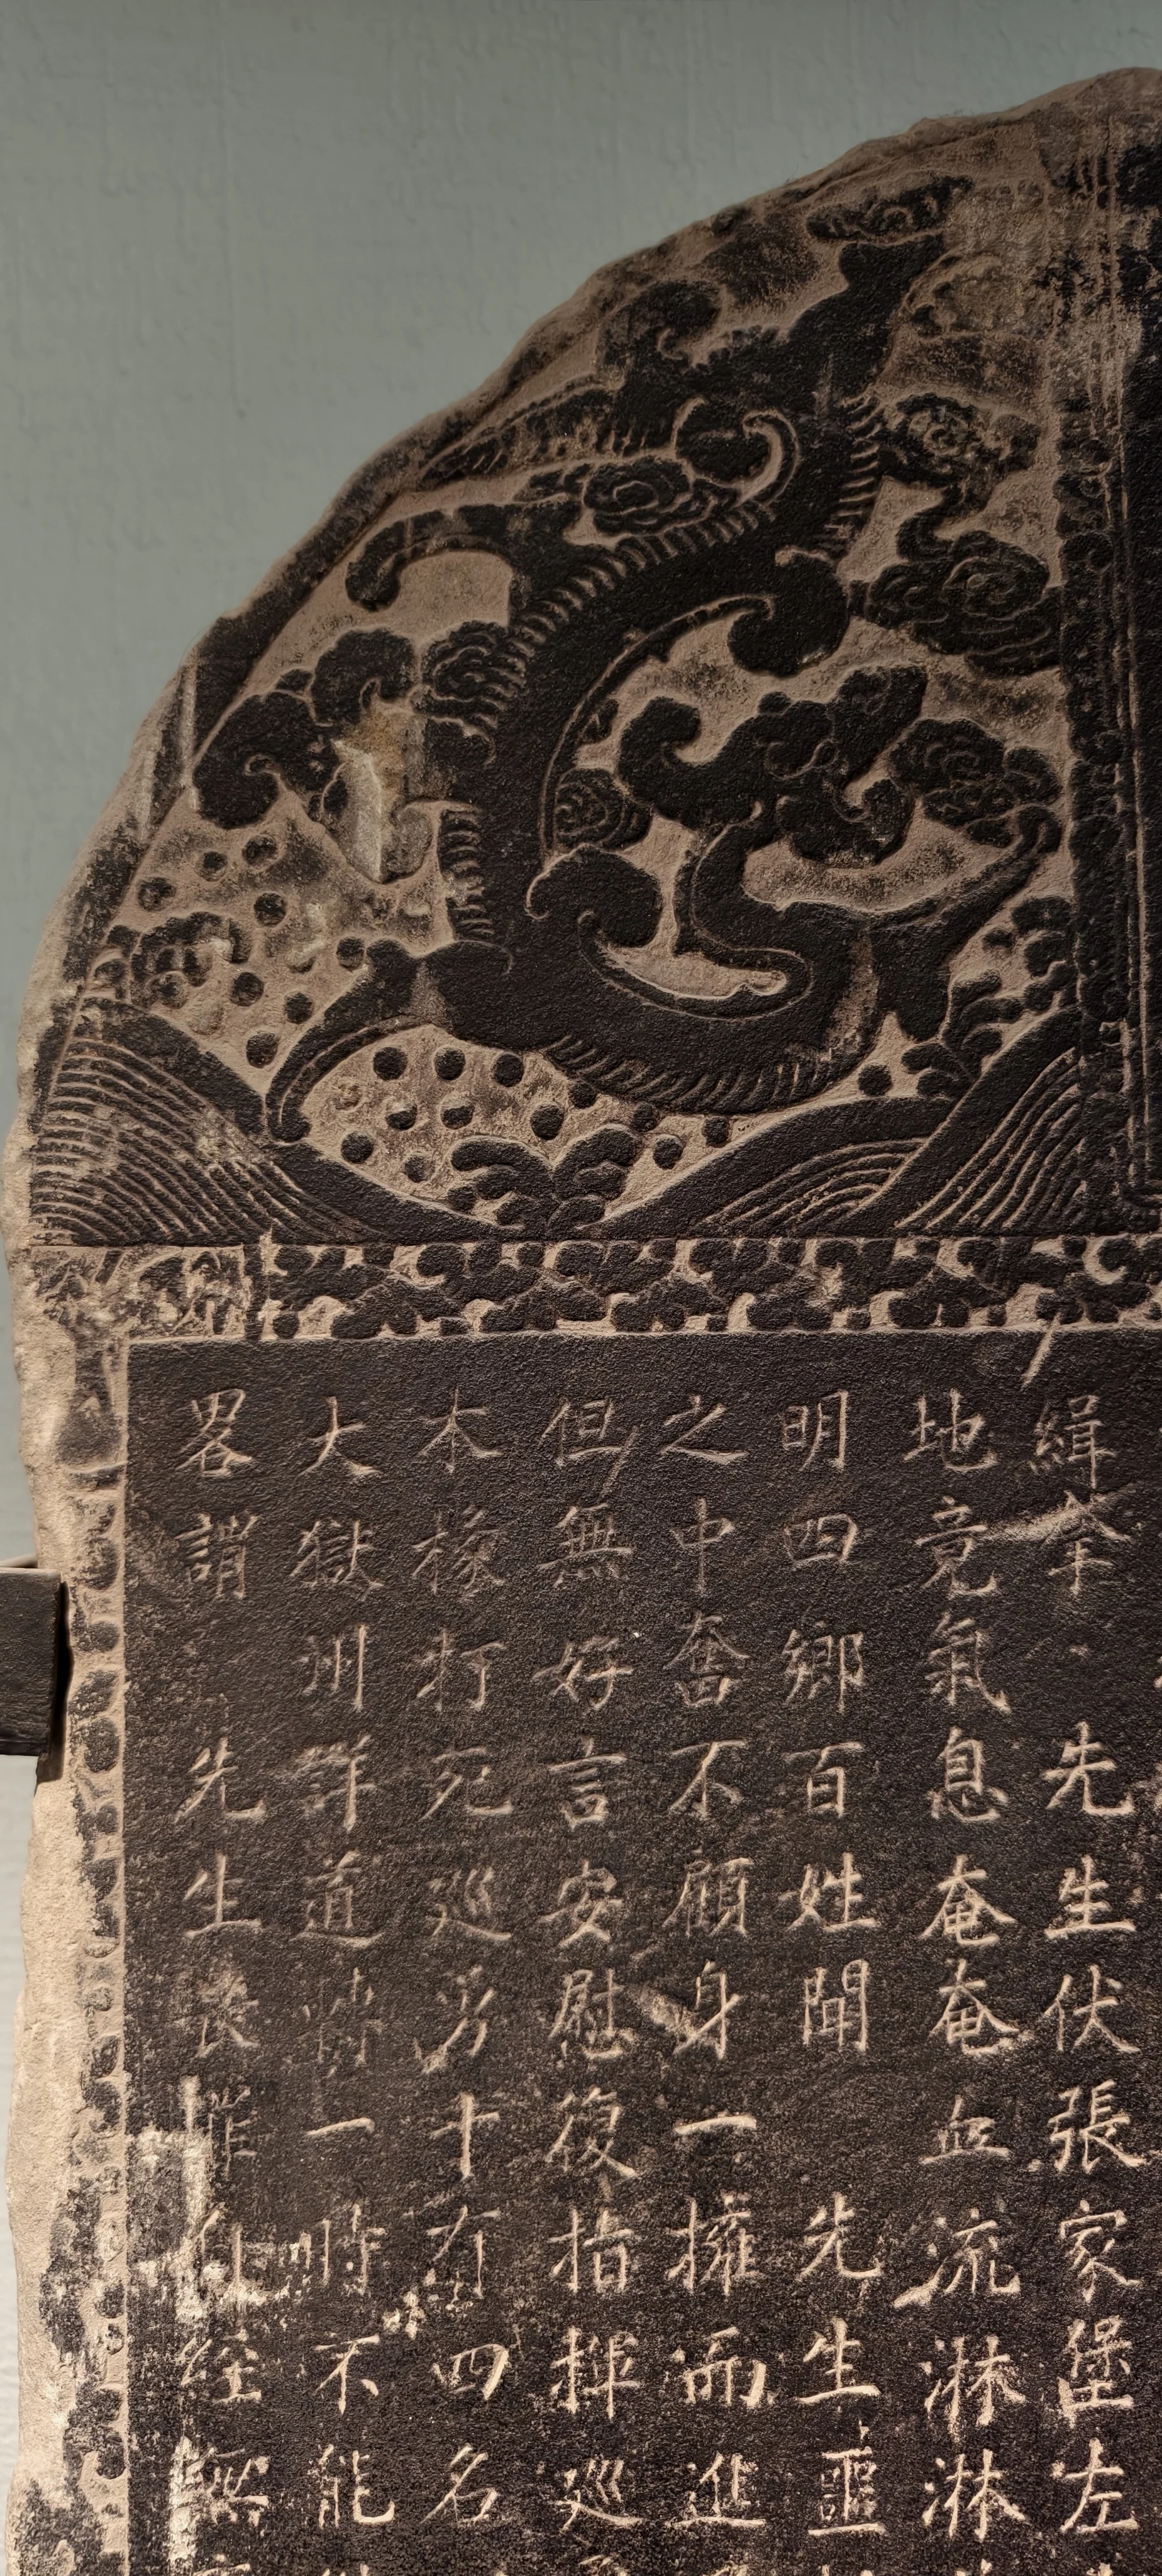 緝拿 先生伏張家堡左
地竟氣息奄奄血流淋淋
明四鄉百姓聞 先生噩
之中奮不顧身一擁而進
但無好言安慰復指揮巡
木椽打死巡勇十有四名
大獄州詳道 一時不能
畧謂 先生喪 經無